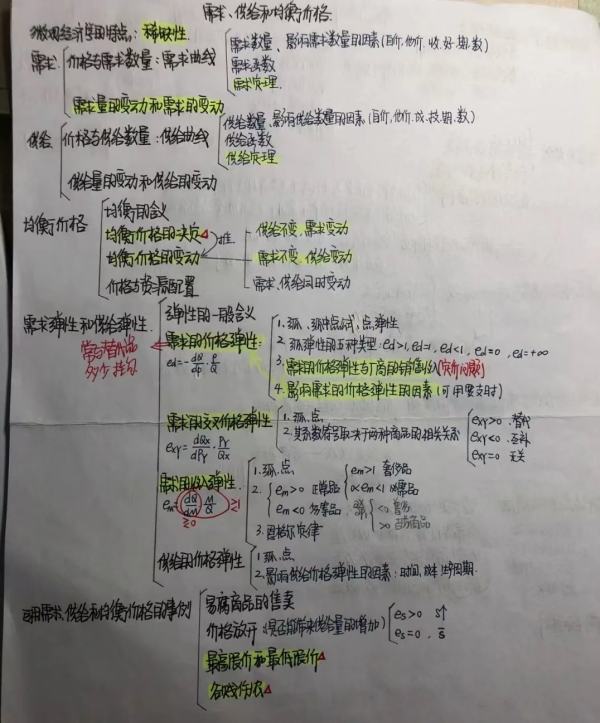 需求、供给和均衡价格
微观经济学的特点: 稀缺性.
需求 价格与需求数量: 需求曲线
需求数量、影响需求数量的因素(自价、他价、收、好、期、数)
需求函数
需求定理.
需求量的变动和需求的变动
供给 价格与供给数量: 供给曲线
供给数量、影响供给数量的因素(自价、他价、成、技、期、数)
供给函数
供给定理
供给量的变动和供给的变动
均衡价格
均衡的含义
均衡价格的决定△
均衡价格的变动
推
供给不变, 需求变动
需求不变, 供给变动
需求、供给同时变动
价格与资源配置
需求弹性和供给弹性.
弹性的一般含义
需求的价格弹性:
ed=-dQ/dP·P/Q
1. 弧、弧中点、点弹性
2. 弧弹性的五种类型: ed>1, ed=1, ed<1, ed=0, ed=+∞
3. 需求的价格弹性与厂商的销售收入
4. 影响需求的价格弹性的因素(可用要支时)
需求的交叉价格弹性
exy=dQx/dPy·Py/Qx
1. 弧、点
2. 其系数符号取决于两种商品的相关关系
exy>0 替代
exy<0 互补
exy=0 无关
需求的收入弹性.
em=dQ/dM·M/Q
≥0
≥1
1. 弧、点
2. em>0 正常品
em>1 奢侈品
0<em<1 必需品
em<0 劣等品
3. 恩格尔定律
供给的价格弹性
1. 弧、点
2. 影响供给价格弹性的因素: 时间, 成本, 生产周期.
运用需求、供给和均衡价格的事例
易腐商品的售卖
价格放开(是否能带来供给量的增加)
es>0 S↑
es=0, S̄
最高限价和最低限价△
谷贱伤农△